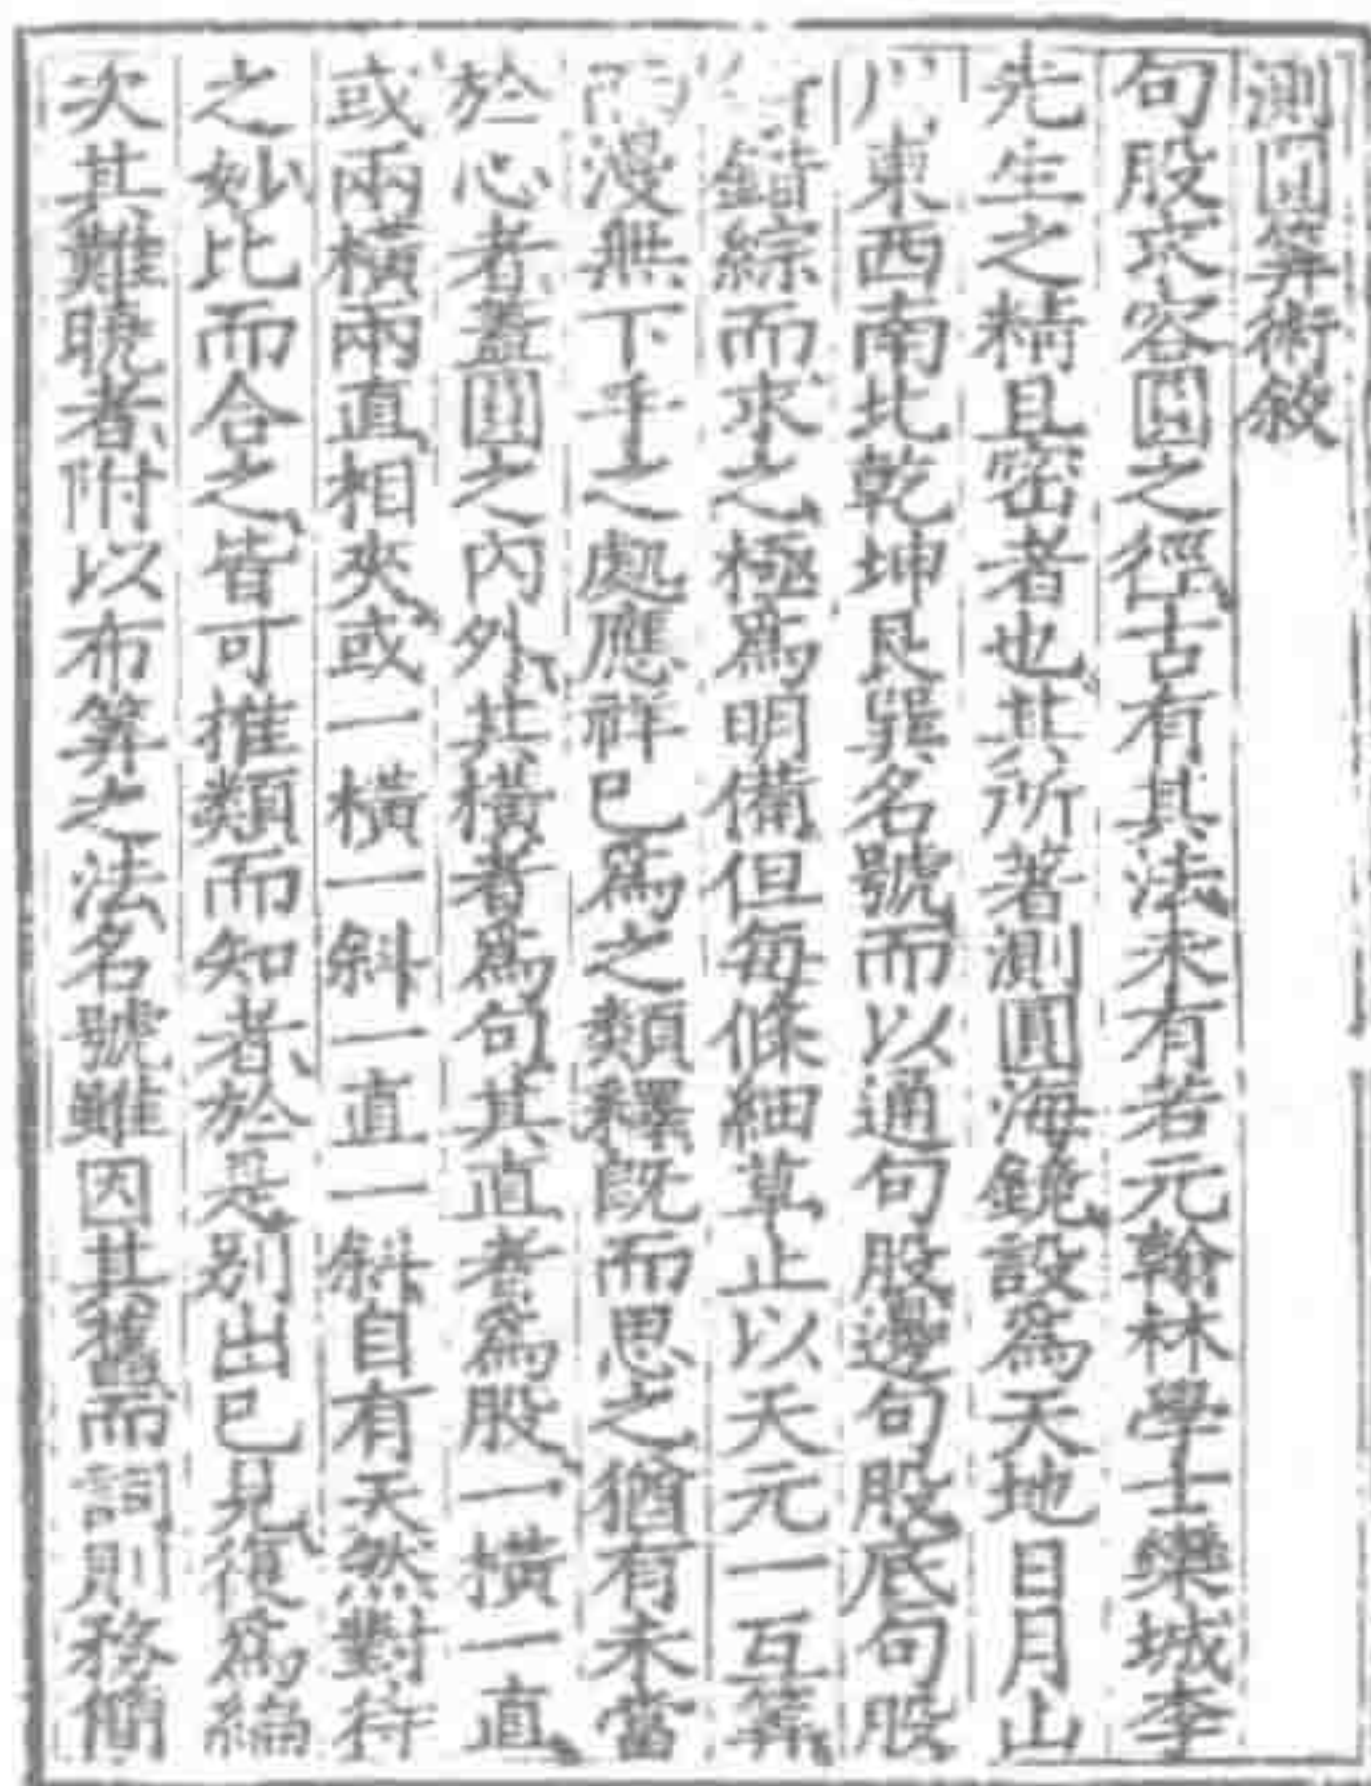 測圓筭術敘
句股求容圓之徑古有其法未有若元翰林學士欒城李
先生之精且密者也其所著測圓海鏡設為天地日月山
川東西南北乾坤艮巽名號而以通句股邊句股底句股
錯綜而求之極為明備但每條細草止以天元一互筭
漫無下手之處應祥已為之類釋旣而思之猶有未當
於心者蓋圓之內外其橫者為句其直者為股一橫一直
或兩橫兩直相夾或一橫一斜一直一斜自有天然對待
之妙比而合之皆可推類而知者於是別出已見復為編
次其難曉者附以布筭之法名號雖因其舊而詞則務簡